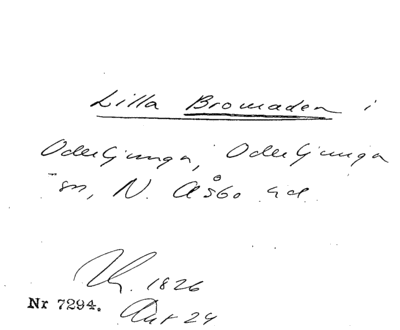 Lilla Bromaden i
Oderljunga, Oderljunga
sn, N. Åsbo hd.
1826
Nr 7294. Akt 24